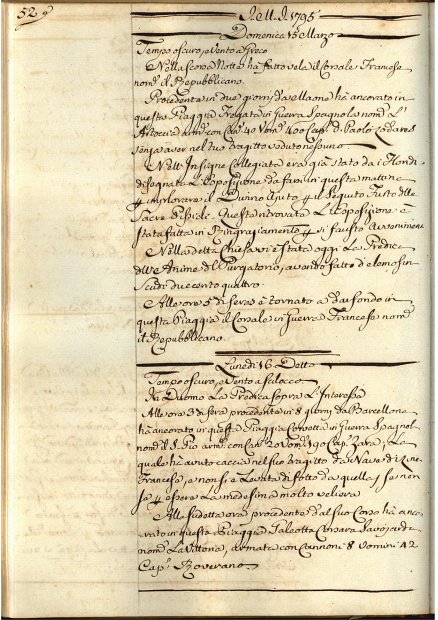 52
Nell. A. 1795
Domenica 15 Marzo
Tempo oscuro, e Vento a Greco
Nella scorsa Notte hà fatto vela il Corsale Francese
nom.º il Repubblicano.
Procedente in due giorni da Savona hà ancorato in
questa Piaggia Fregata in Guerra Spagnola nom.ª L'
arm.ª con Can.i 40 Uom.i 400 Cap.º d. Paolo
senza aver nel suo tragitto veduto nessuno.
Nell'Insigne Collegiata era già stato da i
disegnata L'Esposizione da farsi in questa mattina
implorare il Divino Ajuto, il seguito Furto delle
Sacre Pissidi. Questa ritrovata L'Esposizione è
stata fatta in Ringraziamento fausto
Nella detta Chiesa vi è stata oggi La Predica
delle Anime del Purgatorio, avendo fatto d'elemosin
Scudi duecento quattro.
Alle ore 5 di sera è tornato a dar fondo in
questa Piaggia il Corsale in Guerra Francese nom.º
il Repubblicano.
Lunedì 16 Detto
Tempo oscuro, e Vento a Scilocco
In Duomo La Predica sopra L'Interesse
Alle ore 3 da sera procedente in 8 giorni da Barcellona
hà ancorato in questa Piaggia Corvetta in Guerra Spagnol.
nom.ª il S. Pio arm.ª con Can.i 20 Uom.i 190 Cap.º Zara; La
quale hà avuto caccia nel suo tragitto da Nave di Linea
Francese, e non si è Levata di sotto da quella, se non
essere La medesima molto veliera
Alla sudetta ora procedente dal suo Corso hà anco
rato in questa Piaggia Galeotta Corsara Savojarda
nom.ª La Vittoria, armata con Cannoni 8 Uomini 42
Cap.º Roverano.